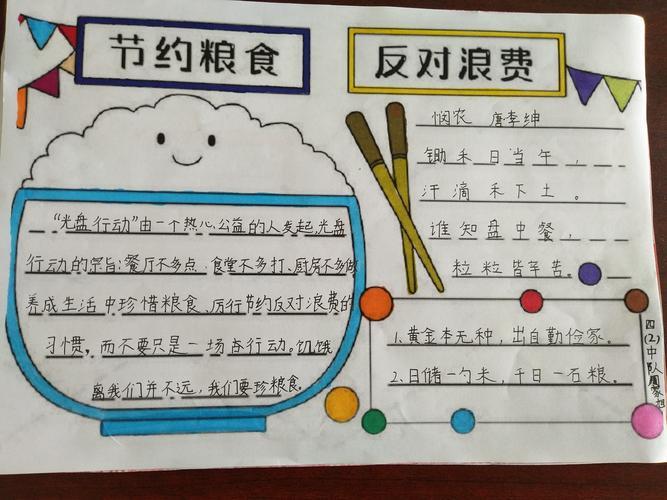 节约粮食
反对浪费
"光盘行动"由一个热心公益的人发起,光盘
行动的宗旨:餐厅不多点、食堂不多打、厨房不多做
养成生活中珍惜粮食、厉行节约反对浪费的
习惯,而不要只是一场行动。饥饿
离我们并不远,我们要珍粮食。
悯农 唐李绅
锄禾日当午,
汗滴禾下土。
谁知盘中餐,
粒粒皆辛苦。
1.黄金本无种,出自勤俭家。
2.日储一勺米,千日一石粮。
四(2)中队周家